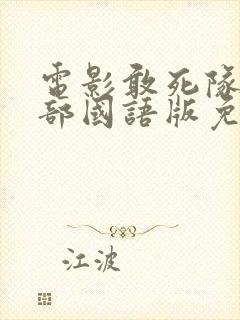 電影敢死隊
部國語版免
江波